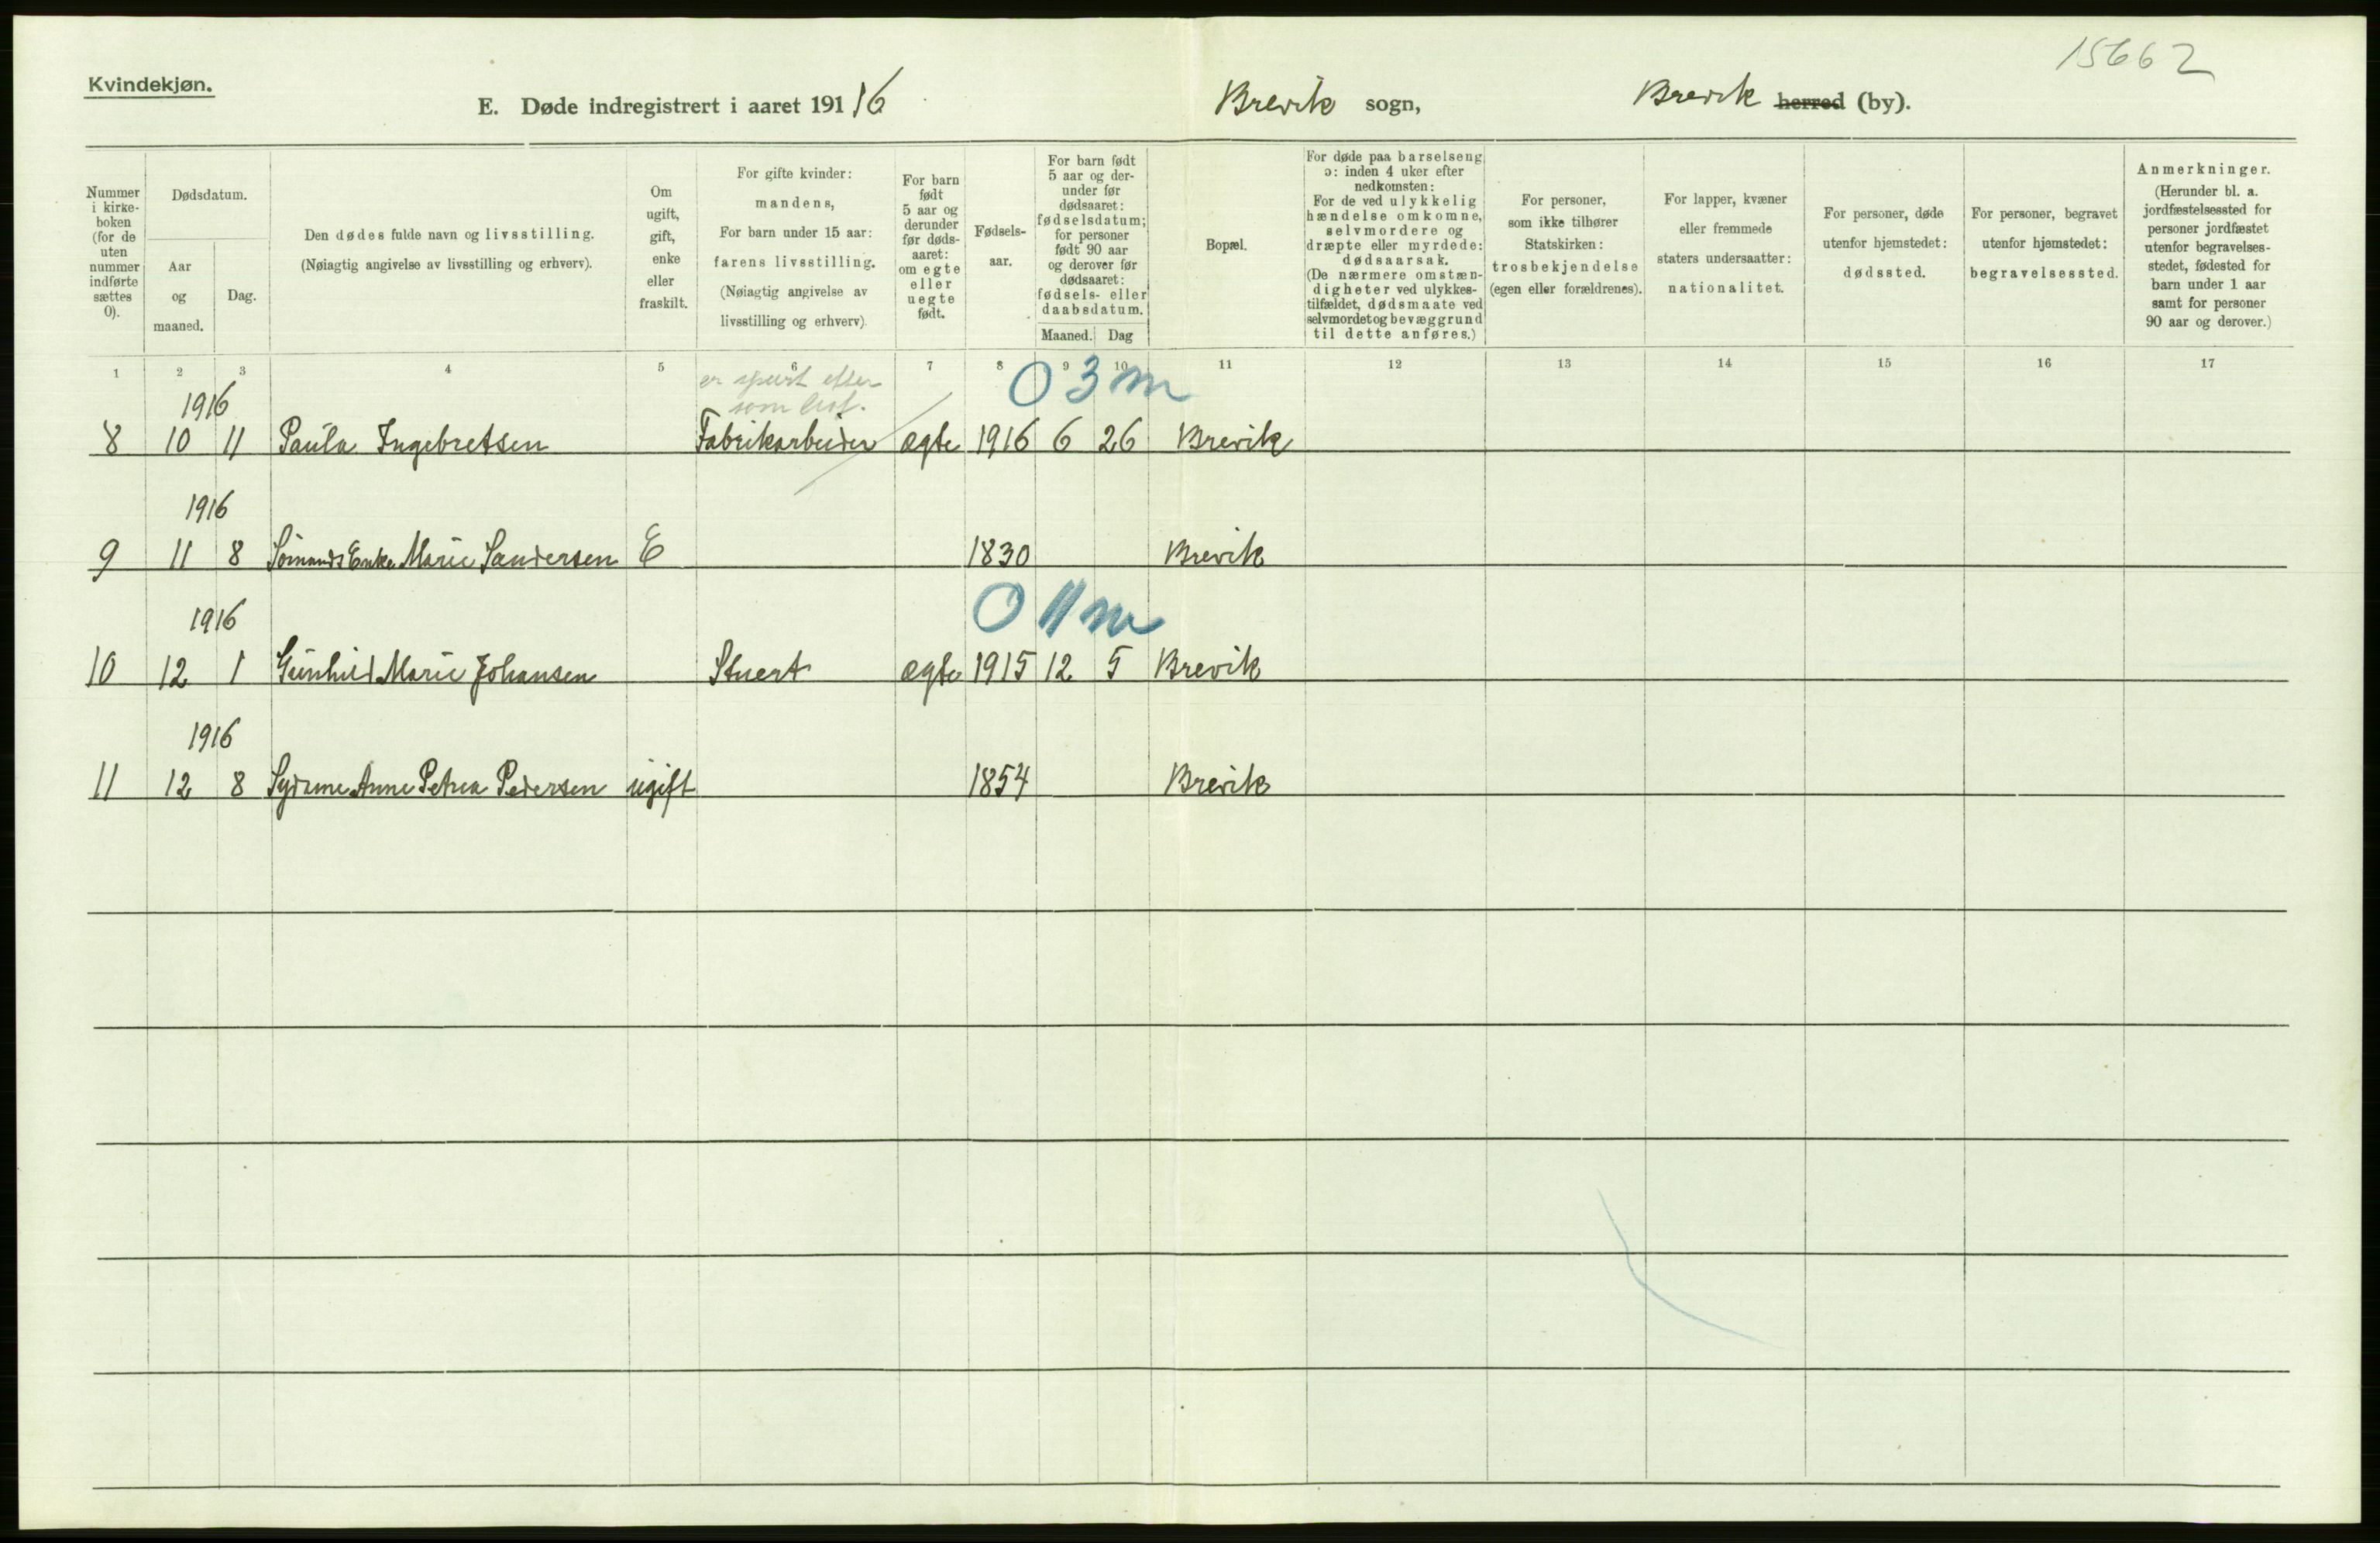 15662
Kvindekjøn.
E. Døde indregistrert i aaret 191 16 Brevik sogn, Brevik herred (by).
Nummer i kirke-boken (for de uten nummer indførte sættes 0).
Dødsdatum.
Aar og maaned.
Dag.
Den dødes fulde navn og livsstilling.
(Nøiagtig angivelse av livsstilling og erhverv).
Om ugift, gift, enke eller fraskilt.
For gifte kvinder:
mandens,
For barn under 15 aar:
farens livsstilling.
(Nøiagtig angivelse av
livsstilling og erhverv)
For barn født 5 aar og derunder før døds-aaret: om egte eller uegte født.
Fødsels-aar.
For barn født 5 aar og der-under før dødsaaret: fødselsdatum; for personer født 90 aar og derover før dødsaaret: fødsels- eller daabsdatum.
Maaned. Dag
Bopæl.
For døde paa barselseng ɔ: inden 4 uker efter nedkomsten:
For de ved ulykkelig hændelse omkomne, selvmordere og dræpte eller myrdede: dødsaarsak.
(De nærmere omstæn-digheter ved ulykkes-tilfældet, dødsmaate ved selvmordet og bevæggrund til dette anføres.)
For personer, som ikke tilhører Statskirken: trosbekjendelse (egen eller forældrenes).
For lapper, kvæner eller fremmede staters undersaatter: nationalitet.
For personer, døde utenfor hjemstedet: dødssted.
For personer, begravet utenfor hjemstedet: begravelsessted.
Anmerkninger.
(Herunder bl. a. jordfæstelsessted for personer jordfæstet utenfor begravelses-stedet, fødested for barn under 1 aar samt for personer 90 aar og derover.)
1 2 3 4 5 6 7 8 9 10 11 12 13 14 15 16 17
er spurt efter
som
0 3 m
1916
8 10 11 Paula Ingebretsen Fabrikarbeider ægte 1916 6 26 Brevik
1916
9 11 8 Sømands Enke Marie Sandersen E 1830 Brevik
0 11 m
1916
10 12 1 Gunhild Marie Johansen Stuert ægte 1915 12 5 Brevik
1916
11 12 8 Anne Petrea Pedersen ugift 1854 Brevik